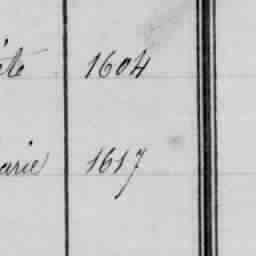 été 1604
arie 1617